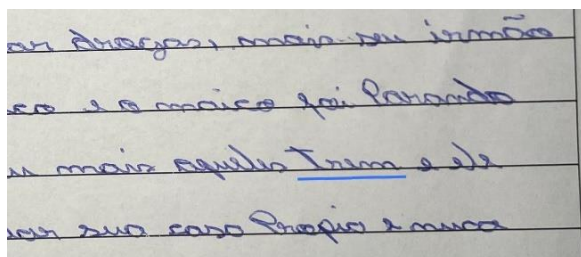 ar drogas, mais seu irmão
co e o maico foi Parando
u mais aqueles Trem e ele
ar sua casa Propio e nuca